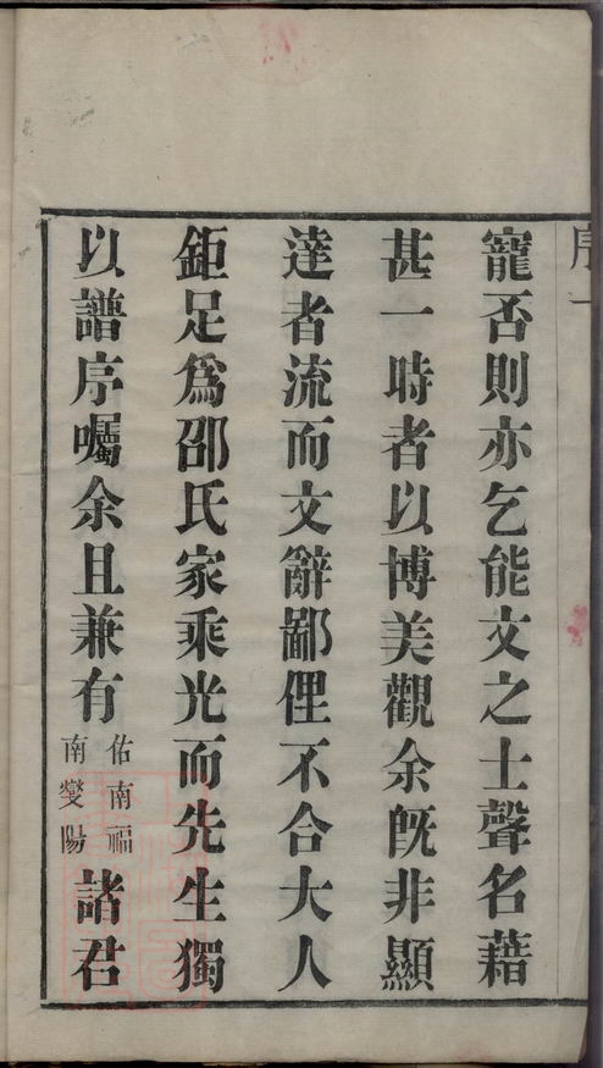 序一
寵否則亦乞能文之士聲名藉
甚一時者以博美觀余旣非顯
達者流而文辭鄙俚不合大人
鉅足爲邵氏家乘光而先生獨
以譜序囑余且兼有佑南福南燮陽諸君